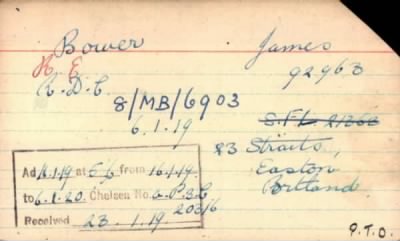 Bower James
R.E. 92963
R.D.C.
8/MB/6903
6.1.19
83 Straits,
Easton
Portland
Ad 16.1.19 at 5/6 from 16.1.19
to 6.1.20 Chelsea No. 6.P.36
20316
Received 23.1.19
P.T.O.